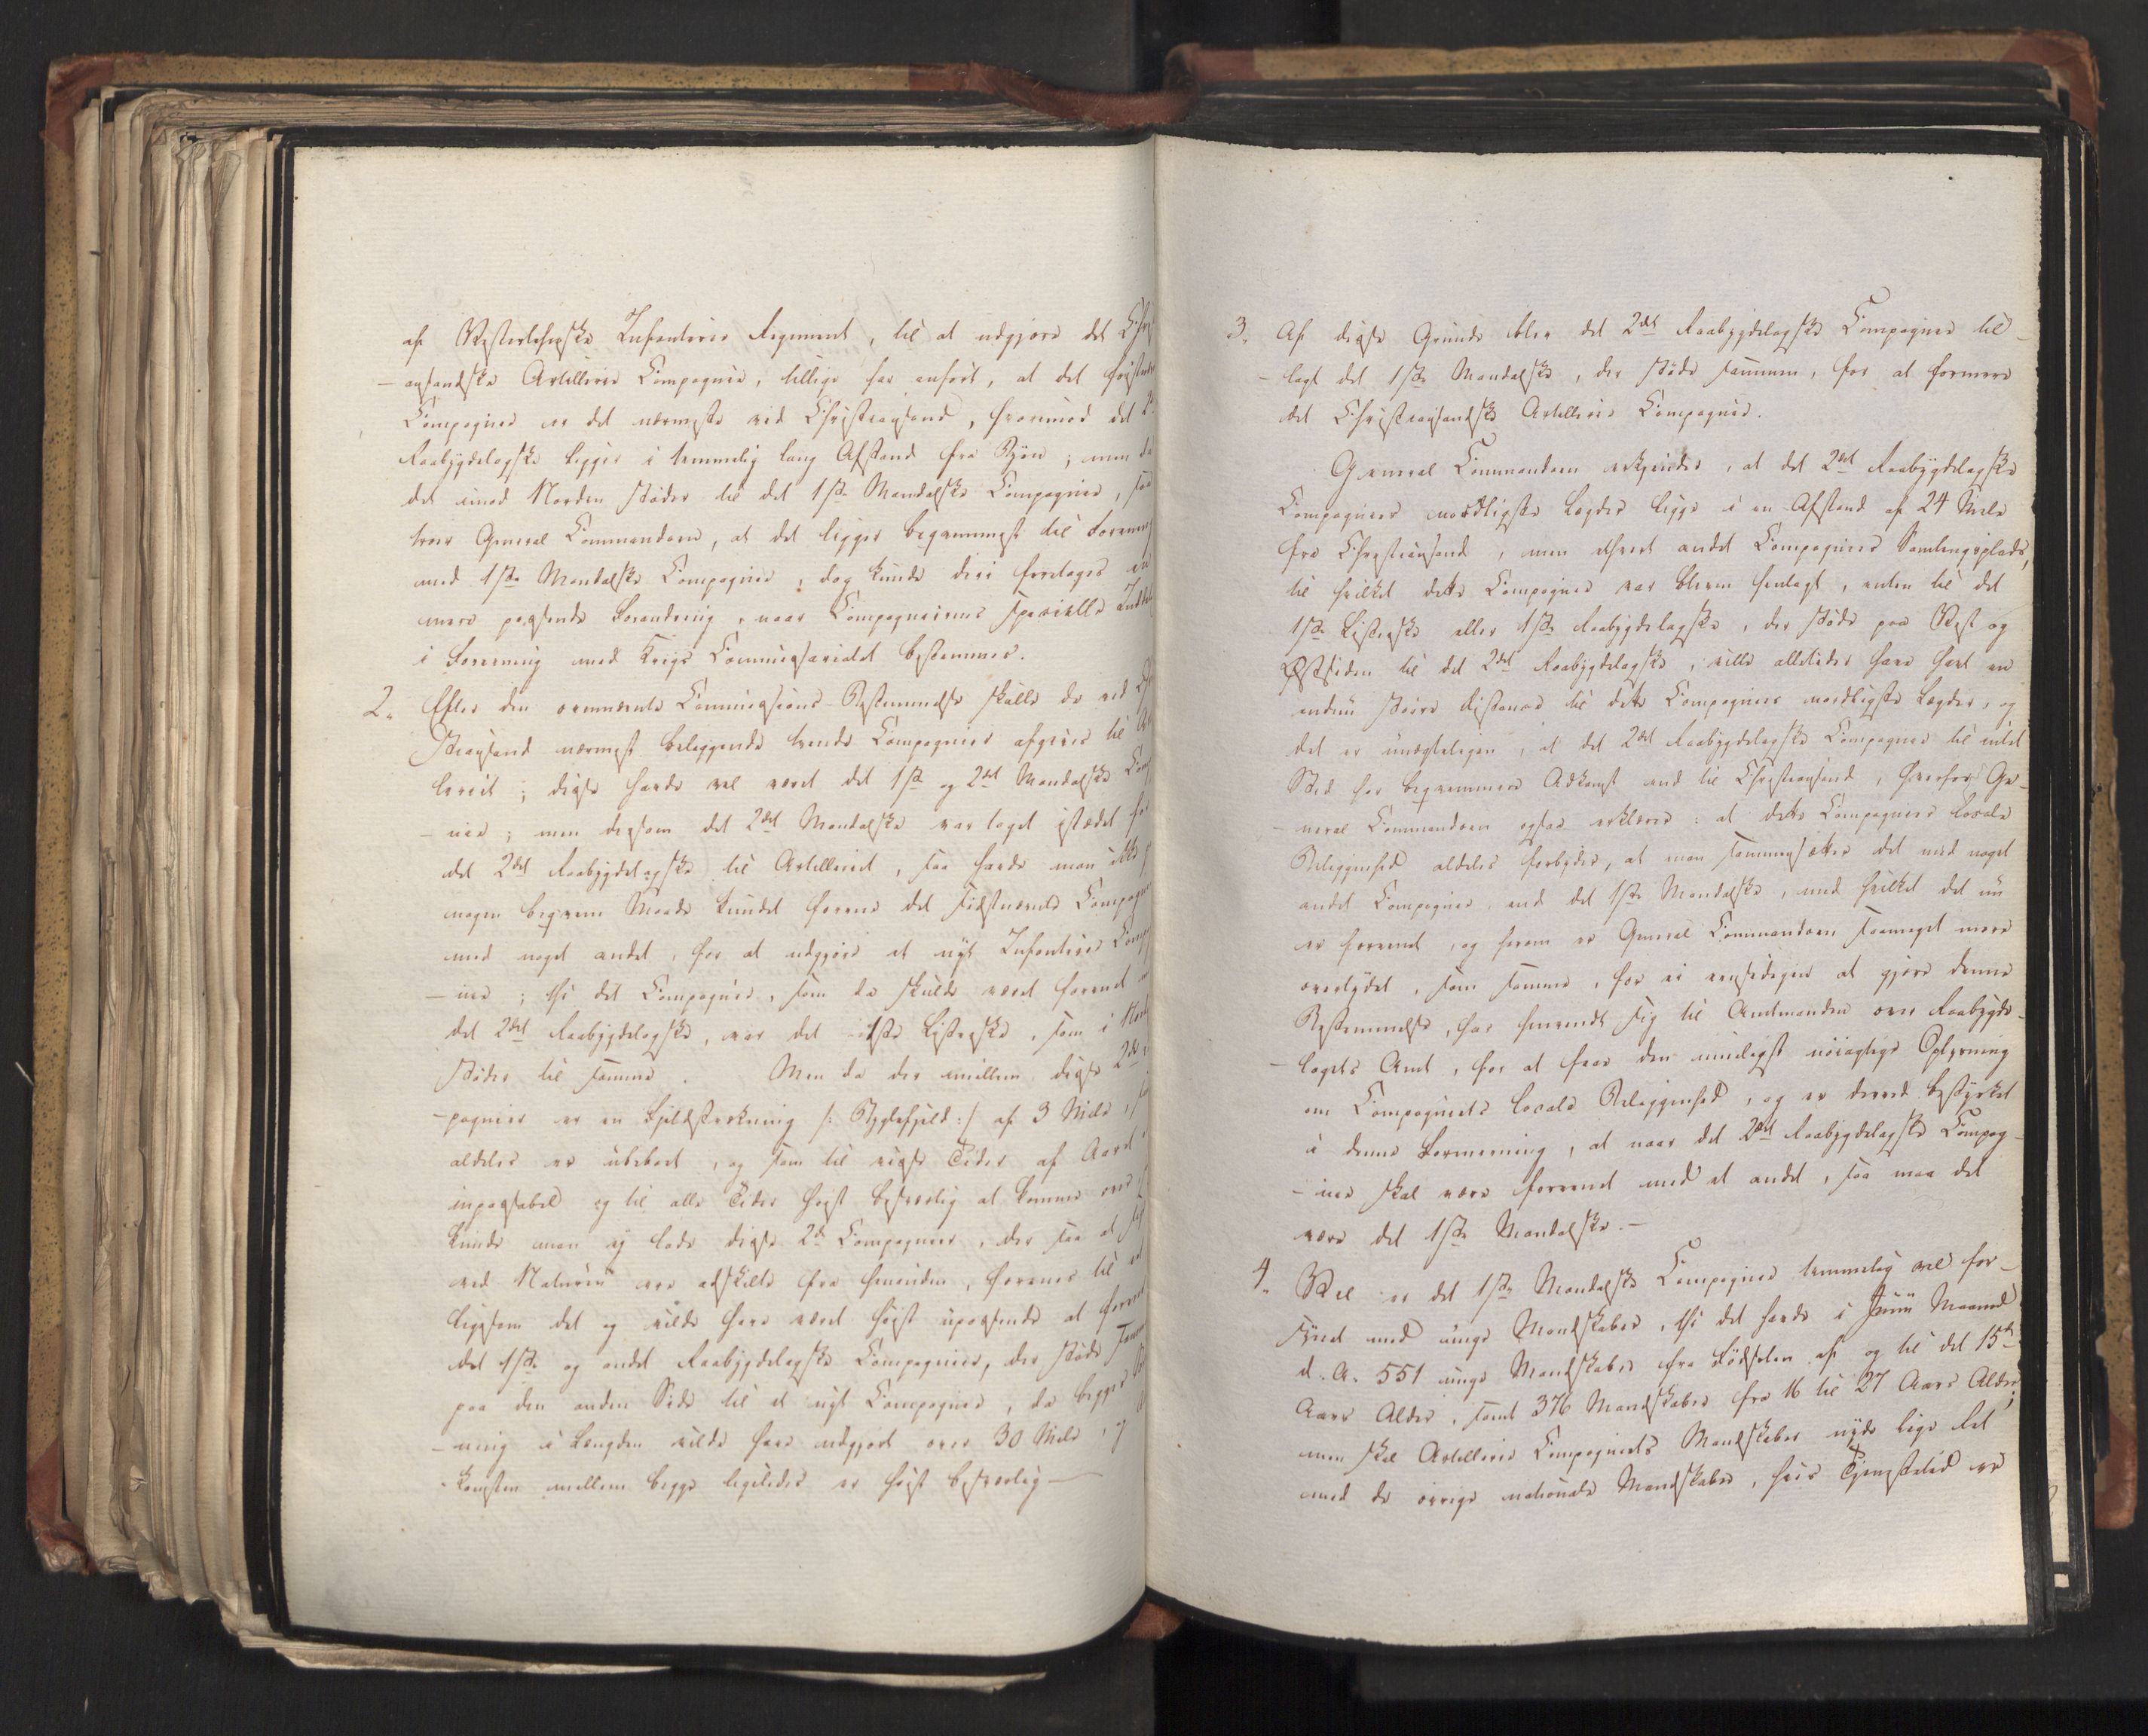 af Vesterlehnske Infanterie Regiment, til at udgjøre det Chri
-ansandske Artillerie Compagnie, tillige har anført, at det førstnævn
Compagnie er det nærmeste ved Christiansand, hvorimod det 2
Raabygdelagske ligger i temmelig lang Afstand fra Byen; men da
det imod Norden støder til det 1ste Mandalske Compagnie, saa
troer General Commandoen, at det ligger beqvemmest til Forening
med 1ste Mandalske Compagnie, dog kunde deri foretages en
mere passende Forandring, naar Compagniernes specielle Indd
i Forening med Krigs Commissariatet bestemmes.
2. Efter den ovennævnte Commissions-Bestemmelse skulle de ved Chri
stiansand nærmest beliggende tvende Compagnier afgives til Ar
leriet; disse havde vel været det 1ste og 2det Mandalske Comp
-nie; men dersom det 2det Mandalske var taget istædet for
det 2det Raabygdelagske til Artilleriet, saa havde man ikke p
nogen beqvem Maade kundet forene det sidstnævnte Compagn
med noget andet, for at udgjøre et nyt Infanterie Comp
-nie; thi det Compagnie, som da skulde været forenet m
det 2det Raabygdelagske, var det 1ste Listerske, som i Nord
støder til samme. Men da der imellem disse 2de
-pagnier er en Fjeldstrækning /: Byglefjeld:/ af 3 Mile, s
aldeles er ubeboet, og som til visse Tider af Aaret
inpassabel og til alle Tider høist besværlig at komme over
kunde man ej lade disse 2de Compagnier, der saa at sig
ved Naturen ere adskilte fra hinanden, forenes til et
ligesom det og vilde have været høist upassende at forene
det 1ste og andet Raabygdelagske Compagnier, der støde sammen
paa den anden Side til et nyt Compagnie, da begges
-ning i Længden vilde have udgjort over 30 Mile, og
-komsten mellem begge ligeledes er høist besværlig —
3. Af disse Grunde blev det 2det Raabygdelagske Compagnie til-
-lagt det 1ste Mandalske, der støde sammen, for at formere
det Christiansandske Artillerie Compagnie.
General Commandoen erkjender, at det 2det Raabygdelagske
Compagnies nordligste Lægder ligge i en Afstand af 24 Mile
fra Christiansand, men ethvert andet Compagnies Samlingsplads,
til hvilket dette Compagnie var bleven henlagt, enten til det
1ste Listerske eller 1ste Raabygdelagske, der støde paa Vest og
Østsiden til det 2det Raabygdelagske, ville alletider have havt en
endnu større Distance til dette Compagnies nordligste Lægder, og
det er unægteligen, at det 2det Raabygdelagske Compagnie til intet
Sted har beqvemmere Adkomst end til Christiansand, hvorfor Ge-
-neral Commandoen ogsaa erklærer: at dette Compagnies locale
Beliggenhed aldeles forbyder, at man sammensætter det med noget
andet Compagnie, end det 1ste Mandalske, med hvilket det nu
er forenet, og herom er General Commandoen saameget mere
overtydet, som samme, for ei eensidigen at gjøre denne
Bestemmelse, har henvendt sig til Amtmanden over Raabygde-
-lagets Amt, for at faae den muligst nøiagtige Oplysning
om Compagniets locale Beliggenhed, og er derved bestyrket
i denne Formening, at naar det 2det Raabygdelagske Compag-
-nie skal være forenet med et andet, saa maa det
være det 1ste Mandalske.—
4. Vel er det 1ste Mandalske Compagnie temmelig vel for-
synet med unge Mandskaber, thi det havde i Junii Maaned
d. A. 551 unge Mandskaber fra Fødselen af og til det 15de
Aars Alder, samt 376 Mandskaber fra 16 til 27 Aars Alder,
men skal Artillerie Compagniets Mandskaber nyde lige Ret
med de øvrige nationale Mandskaber, hvis Tjenestetid er